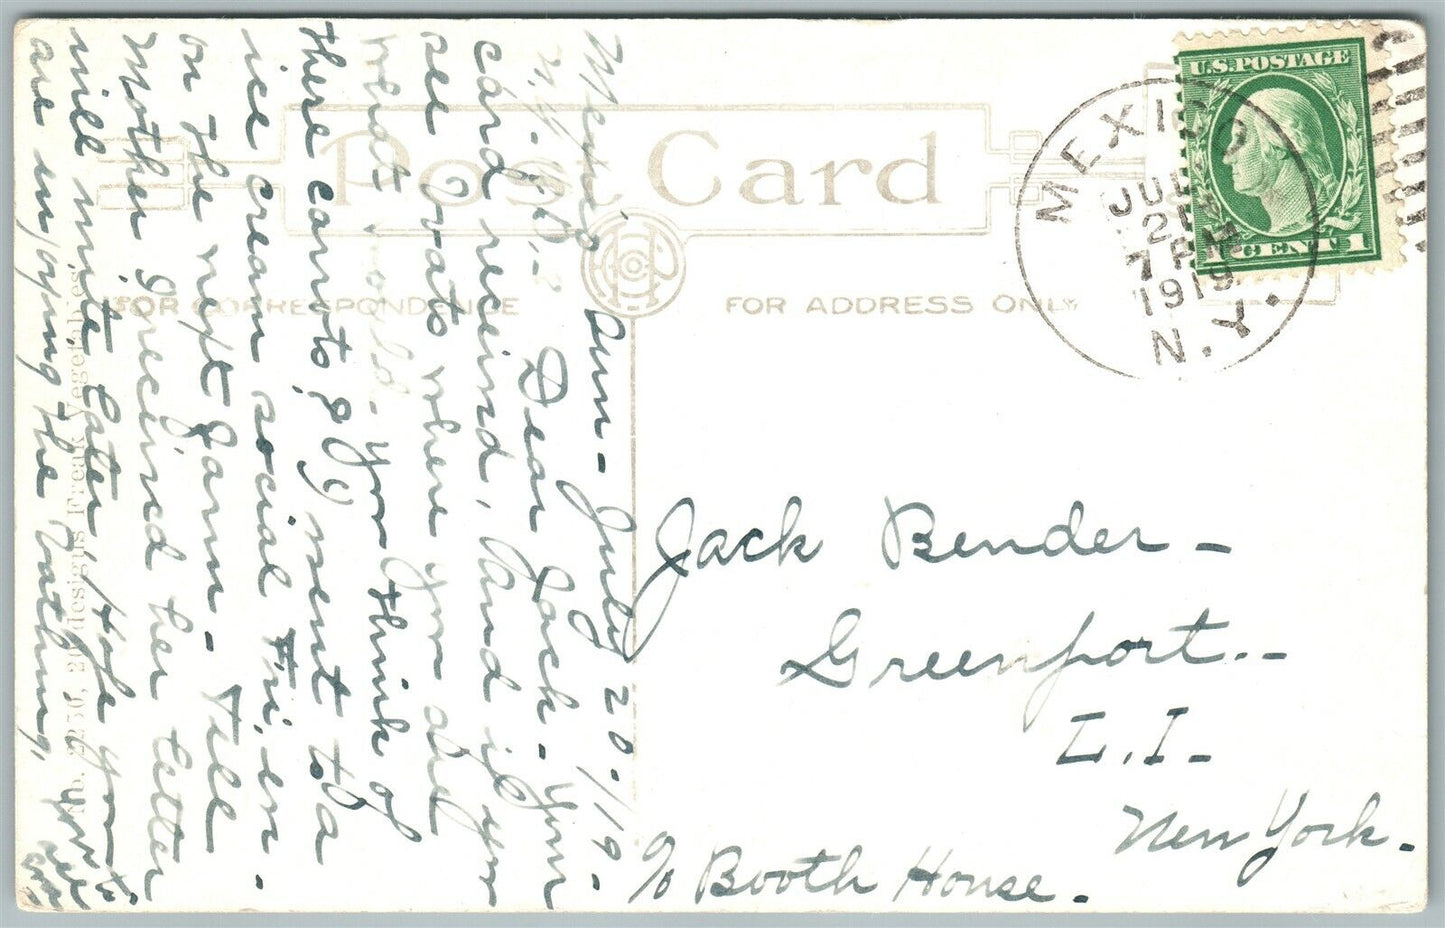 Mexico Sun - July 20-/19-
N.Y. -
Dear Jack - Your
card received, and if you
see Oats where you are
what would - you think of
there carrots, & G) went to a
ice cream social Fri. on -
on the next farm - Tell
Mother I received her letter
will write later, Hope you
are enjoying the bathing,
No. 2230, 20 designs Freak Vegetables
Post Card
FOR CORRESPONDENCE
FOR ADDRESS ONLY
MEXICO
JUL
7 PM
1919
N.Y.
U.S. POSTAGE
1 CENT 1
Jack Bender -
Greenport --
L.I. -
New York.
c/o Booth House.